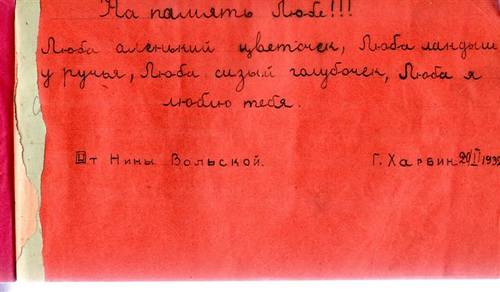 На память Любе!!!
Люба аленький цветочек, Люба ландыш
у ручья, Люба сизый голубочек, Люба я
люблю тебя.
От Нины Вольской. Г. Харбин.